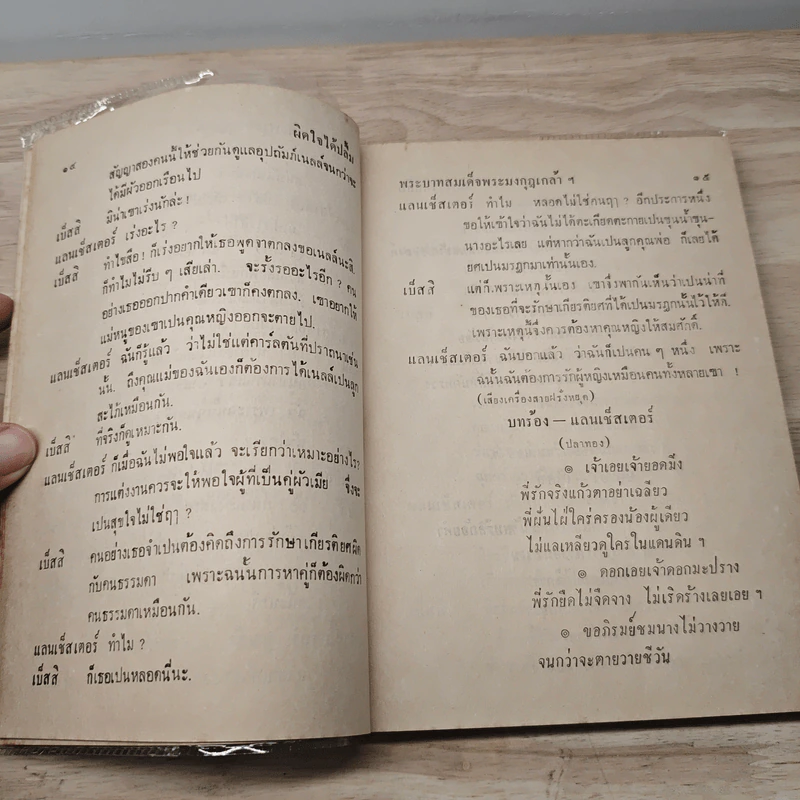 ผิดใจได้ปลื้ม
๑๔
สัญญาสองคนนี้ให้ช่วยกันดูแลอุปถัมภ์เนลล์จนกว่าจะ
ได้มีผัวออกเรือนไป
เบ็สสิ มิน่าเขาเร่งนักล่ะ!
แลนเช็สเตอร์ เร่งอะไร?
เบ็สสิ ทำไขสือ! ก็เร่งอยากให้เธอพูดจาตกลงขอเนลล์น่ะสิ
ก็ทำไมไม่รีบ ๆ เสียเล่า. จะรั้งรออะไรอีก? คน
อย่างเธอออกปากคำเดียวเขาก็คงตกลง. เขาอยากให้
แม่หนูของเขาเปนคุณหญิงออกจะตายไป.
แลนเช็สเตอร์ ฉันก็รู้แล้ว ว่าไม่ใช่แต่คาร์ลตันที่ปราถนาเช่น
นั้น. ถึงคุณแม่ของฉันเองก็ต้องการได้เนลล์เปนลูก
สะใภ้เหมือนกัน.
เบ็สสิ ที่จริงก็ดูเหมาะกัน.
แลนเช็สเตอร์ ก็เมื่อฉันไม่พอใจแล้ว จะเรียกว่าเหมาะอย่างไร?
การแต่งงานควรจะให้พอใจผู้ที่เป็นคู่ผัวเมีย จึ่งจะ
เปนสุขใจไม่ใช่ฤๅ ?
เบ็สสิ คนอย่างเธอจำเปนต้องคิดถึงการรักษาเกียรติยศผิด
กับคนธรรมดา เพราะฉนั้นการหาคู่ก็ต้องผิดกว่า
คนธรรมดาเหมือนกัน.
แลนเช็สเตอร์ ทำไม ?
เบ็สสิ ก็เธอเปนหลอดนี่นะ.
พระบาทสมเด็จพระมงกุฎเกล้า ฯ ๑๕
แลนเช็สเตอร์ ทำไม หลอดไม่ใช่คนฤๅ? อีกประการหนึ่ง
ขอให้เข้าใจว่าฉันไม่ได้ตะเกียดตะกายเปนขุนน้ำขุน-
นางอะไรเลย แต่หากว่าฉันเปนลูกคุณพ่อ ก็เลยได้
ยศเปนมรฎกมาเท่านั้นเอง.
เบ็สสิ แต่ก็.พระเหตุนั้นเอง เขาจึ่งพากันเห็นว่าเปนน่าที่
ของเธอที่จะรักษาเกียรติยศที่ได้เปนมรฎกนั้นไว้ให้ดี.
เพราะเหตุนี้จึ่งควรต้องหาคุณหญิงให้สมศักดิ์.
แลนเช็สเตอร์ ฉันบอกแล้ว ว่าฉันก็เปนคน ๆ หนึ่ง เพราะ
ฉนั้นฉันต้องการรักผู้หญิงเหมือนคนทั้งหลายเขา !
(เสียงเครื่องสายฝรั่งหยุด)
บทร้อง — แลนเช็สเตอร์
(ปลาทอง)
๏ เจ้าเอยเจ้ายอดมึ่ง
พี่รักจริงแก้วตาอย่าเฉลียว
พี่ผั่นไฝ่ใคร่ครองน้องผู้เดียว
ไม่แลเหลียวดูใครในแดนดิน ฯ
๏ ดอกเอยเจ้าดอกมะปราง
พี่รักยืดไม่จืดจาง ไม่เริดร้างเลยเอย ฯ
๏ ขอภิรมย์ชมนางไม่วางวาย
จนกว่าจะตายวายชีวัน